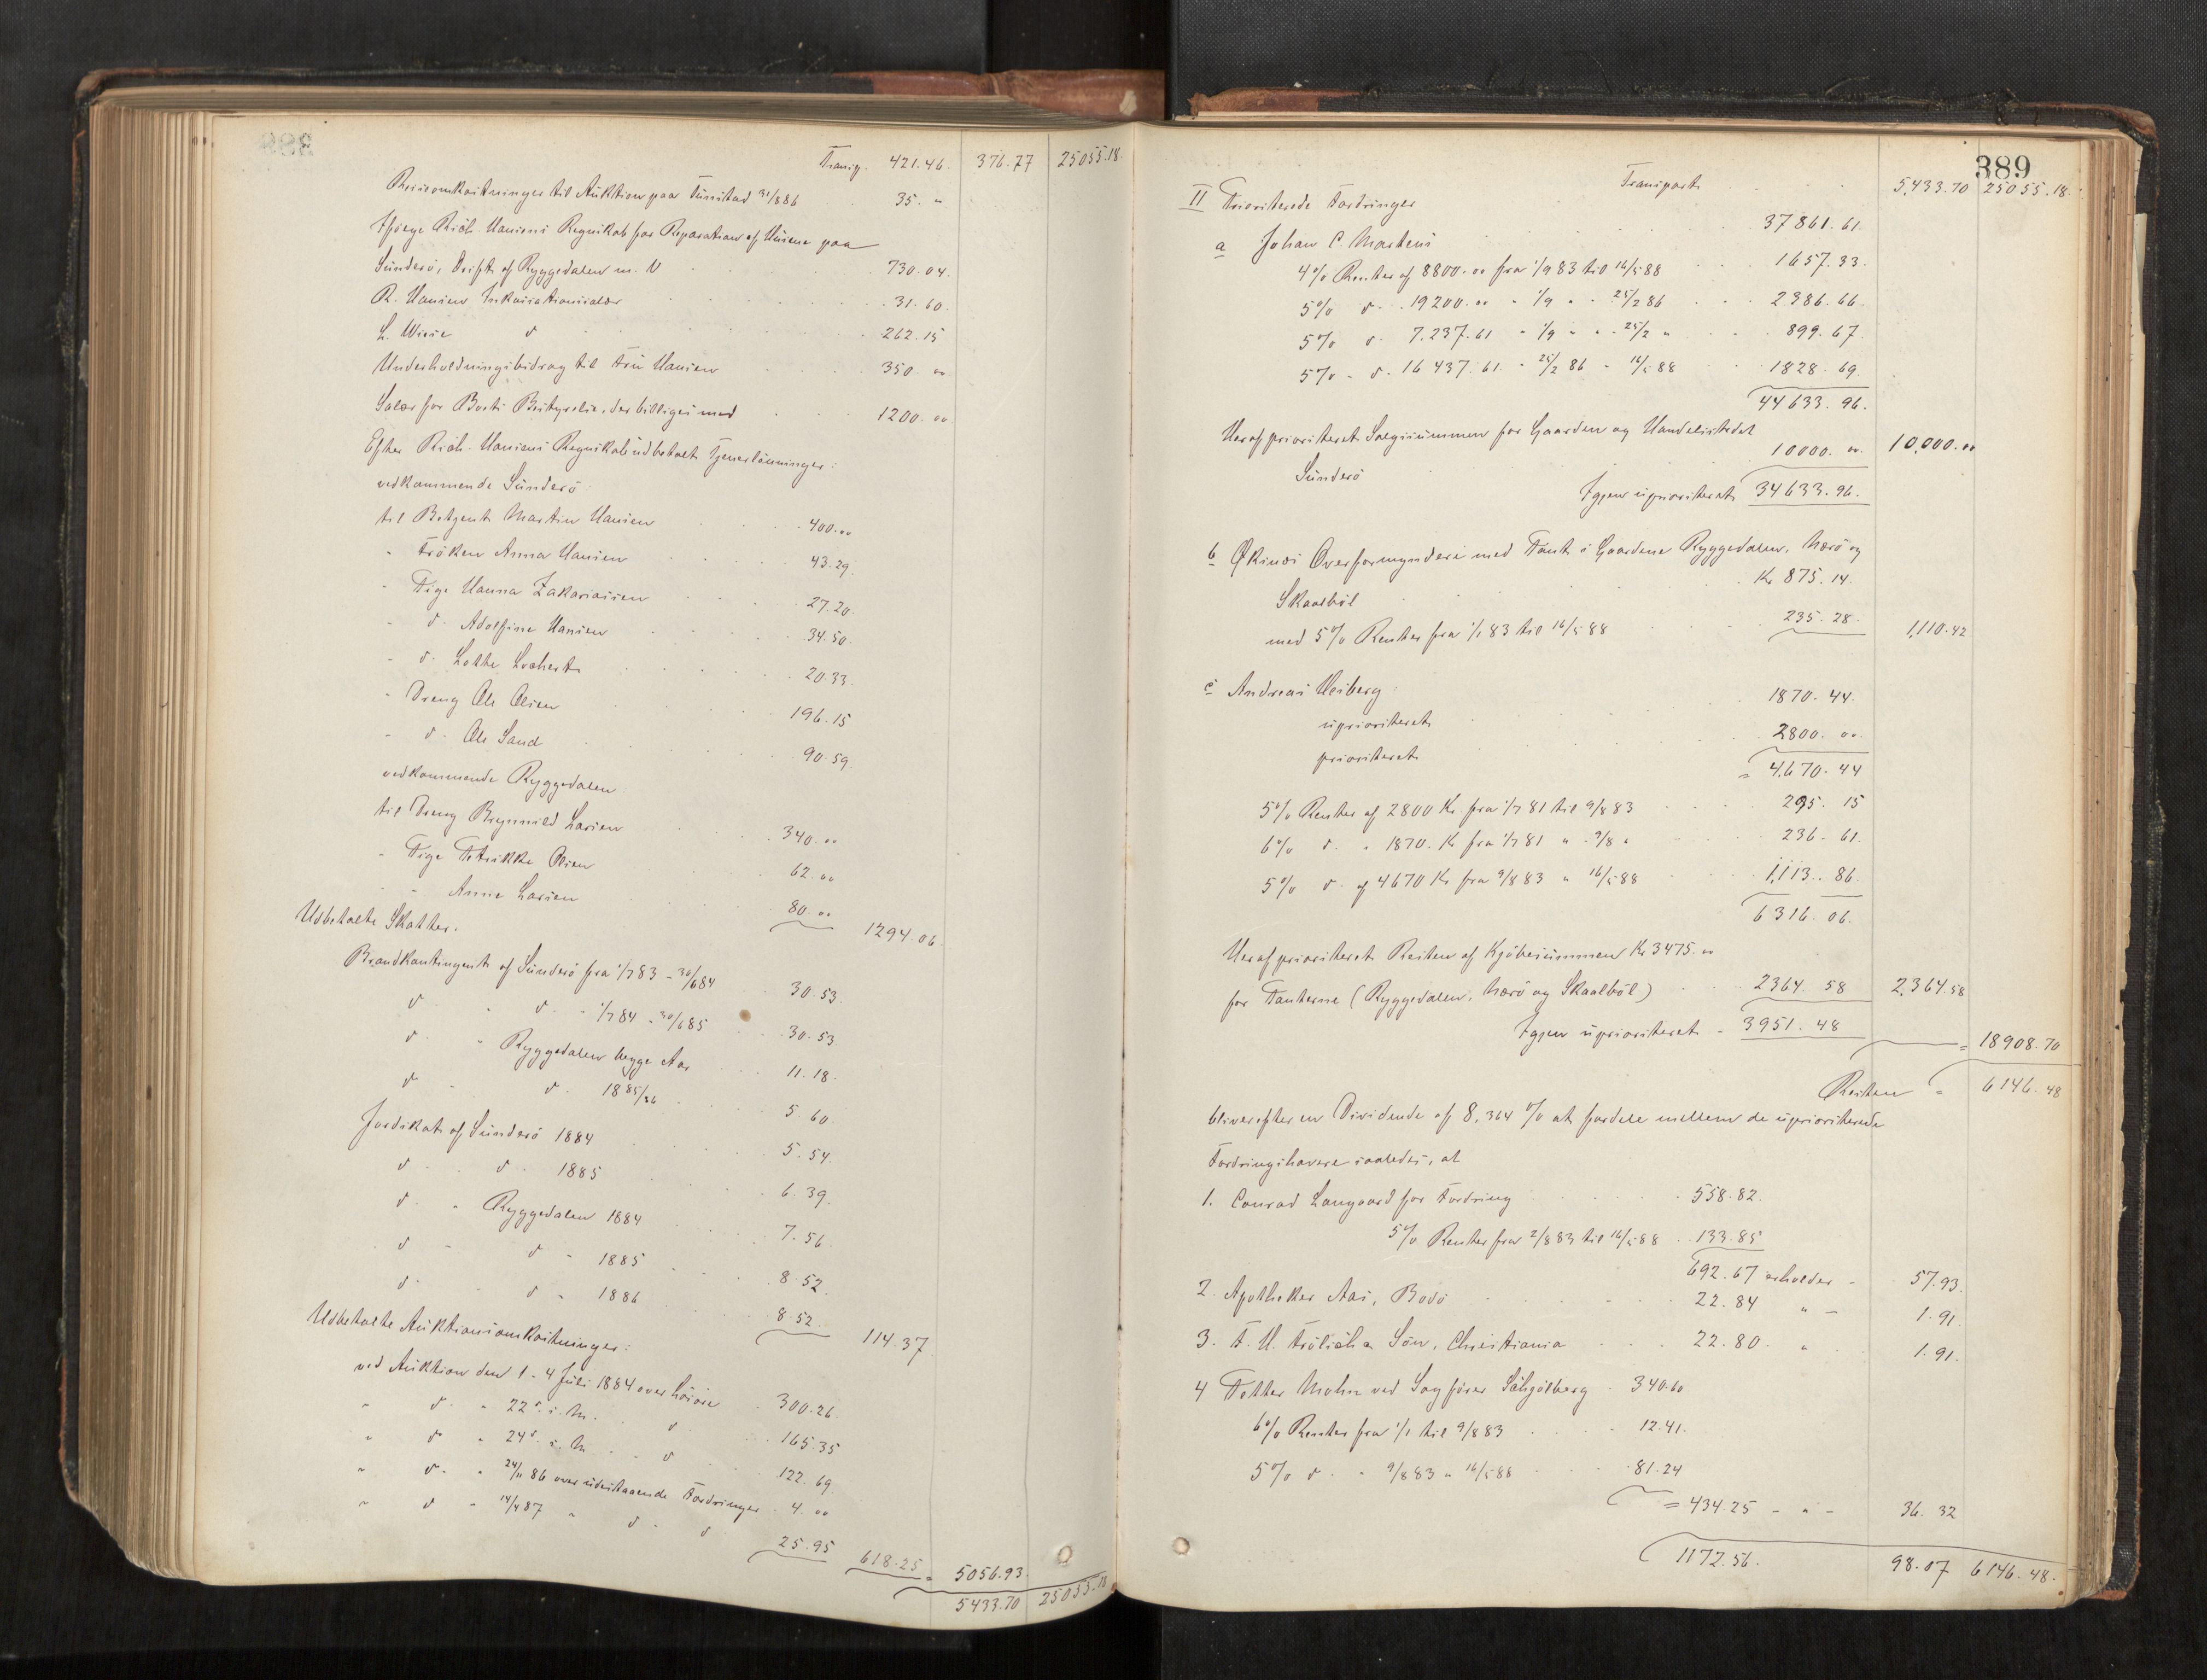 Transp. 421.46. 376.77 25055.18.
Reiseomkostninger til Auktion paa Tunstad 31/8 86 35. "
Ifölge Rich. Hansens Regnskab for Reparation af Husene paa
Sunderö, Drift af Ryggedalen m. V 730.04.
R. Hansen Inkassationssalær 31.60.
L. Wiese d 262.15
Underholdningsbidrag til Fru Hansen 350 "
Salær for Boets Bestyrelse, der billiges med 1200. "
Efter Rich. Hansens Regnskab udbetalt Tjenerlönninger:
vedkommende Sunderö
til Betjent Martin Hansen 400. "
" Fröken Anna Hansen 43.29.
" Pige Hanna Zakariassen 27.20.
" d. Adolfine Hansen 34.50.
" d. Lotte Lochert 20.33.
" Dreng Ole Olsen 196.15
" d. Ole Sand 90.59.
vedkommende Ryggedalen
til Dreng Brynnild Larsen 340. "
" Pige Petrikke Olsen 62. "
" " Anne Larsen 80. " 1294.06.
Udbetalte Skatter.
Brandkontingent af Sunderö fra 1/7 83 - 30/6 84 30.53.
d " d. " 1/7 84 - 30/6 85 30.53
d. " Ryggedalen begge Aar 11.18.
d " d. 1885/86 5.60.
Jordskat af Sunderö 1884 5.54
d. d. 1885 6.39.
d. " Ryggedalen 1884 7.56.
d " d " 1885 8.52.
d. " d " 1886 8.52. 114.37.
Udbetalte Auktionsomkostninger:
ved Auktion den 1 - 4 Juli 1884 over Lösöre 300.26.
" d. " 22d. s. M. d 165.35
" d. " 24d. s. M. d 122.69.
" d. " 24/11 86 over udestaaende Fordringer 4. "
" d " 14/4 87 " d. d 25.95 618.25 = 5056.93.
5433.70 25055.18
389
Transport 5,433.70 25055.18.
II Prioriterede Fordringer
a Johan C. Martens 37861.61.
4% Renter af 8800. " fra 1/9 83 til 16/5 88 1657.33.
5% d. 19200. " " 1/9 " " 25/2 86 2386.66.
5% d. 7.237.61 " 1/9 " " 25/2 " 899.67.
5% - d. 16437.61. " 25/2 86 - 16/5 88 1828.69.
44633.96.
Heraf prioriteret Salgssummen for Gaarden og Handelsstedet
Sunderö 10000. " 10,000. "
Igjen uprioriteret 34633.96.
b Øksnes Overformynderi med Pant i Gaardene Ryggedalen, Nærö og
Skaalböl Kr 875.14.
med 5% Renter fra 1/1 83 til 16/5 88 235.28. 1,110.42
c Andreas Heiberg:
uprioriteret 1870.44.
prioriteret 2800. "
= 4,670.44
5% Renter af 2800 Kr. fra 1/7 81 til 9/8 83 295.15
6% d. " 1870. Kr fra 1/7 81 " 9/8 " 236.61.
5% d. af 4670 Kr fra 9/8 83 " 16/5 88 1,113.86.
6316.06.
Heraf prioriteret Resten af Kjöbesummen Kr 3475. "
for Panterne (Ryggedalen, Nærö og Skaalböl) 2364.58 2,364.58
Igjen uprioriteret - 3951.48 = 18908.70
Resten = 6146.48
bliver efter en Dividende af 8,364 % at fordele mellem de uprioriterede
Fordringshavere saaledes, at
1. Conrad Langaard for Fordring 558.82.
5% Renter fra 2/8 83 til 16/5 88 133.85
692.67 erholder - 57.93.
2. Apotheker Aas, Bodö 22.84 " - 1.91.
3. F. H. Frölich & Sön, Christiania 22.80. " 1.91.
4 Petter Mohn ved Sagförer Schjölberg 340.60
6% Renter fra 1/1 til 9/8 83 12.41.
5% d. " 9/8 83 " 16/5 88 81.24
= 434.25 - " - 36.32
1172.56. 98.07 6146.48.